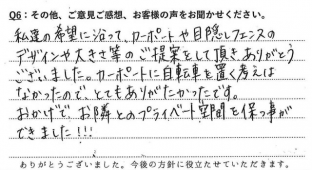 Q6：その他、ご意見ご感想、お客様の声をお聞かせください。
私達の希望に沿って、カーポートや目隠しフェンスの
デザインや大きさ等のご提案をして頂きありがとう
ございました。カーポートに自転車を置く考えは
なかったので、とてもありがたかったです。
おかげで、お隣とのプライベート空間を保つ事が
できました!!!
ありがとうございました。今後の方針に役立たせていただきます。